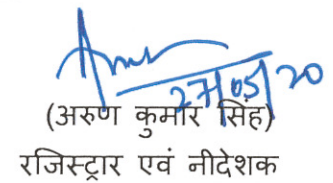 27/05/20
(अरुण कुमार सिंह)
रजिस्ट्रार एवं नीदेशक